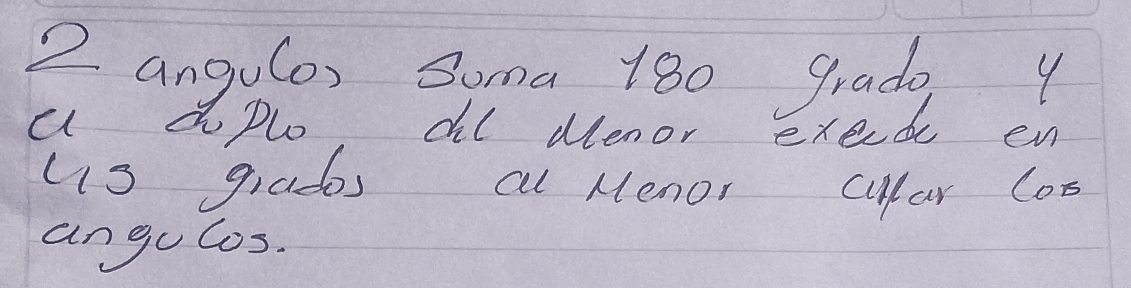 2 angulos suma 180 grado y
el duplo del Menor excede en
45 grados al Menor allar los
angulos.